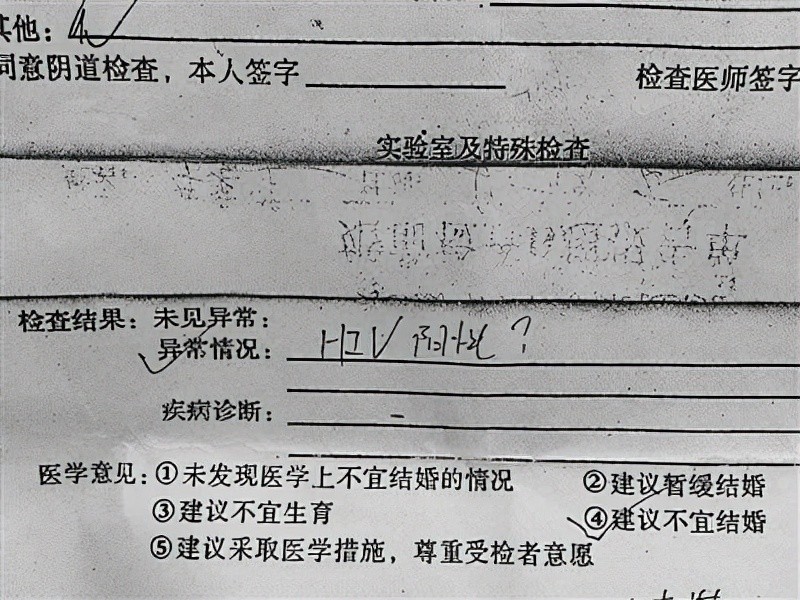 其他：
同意阴道检查，本人签字 检查医师签字
实验室及特殊检查
检查结果：未见异常：
异常情况： HIV 阳性？
疾病诊断：
医学意见：①未发现医学上不宜结婚的情况 ②建议暂缓结婚
③建议不宜生育 ④建议不宜结婚
⑤建议采取医学措施，尊重受检者意愿